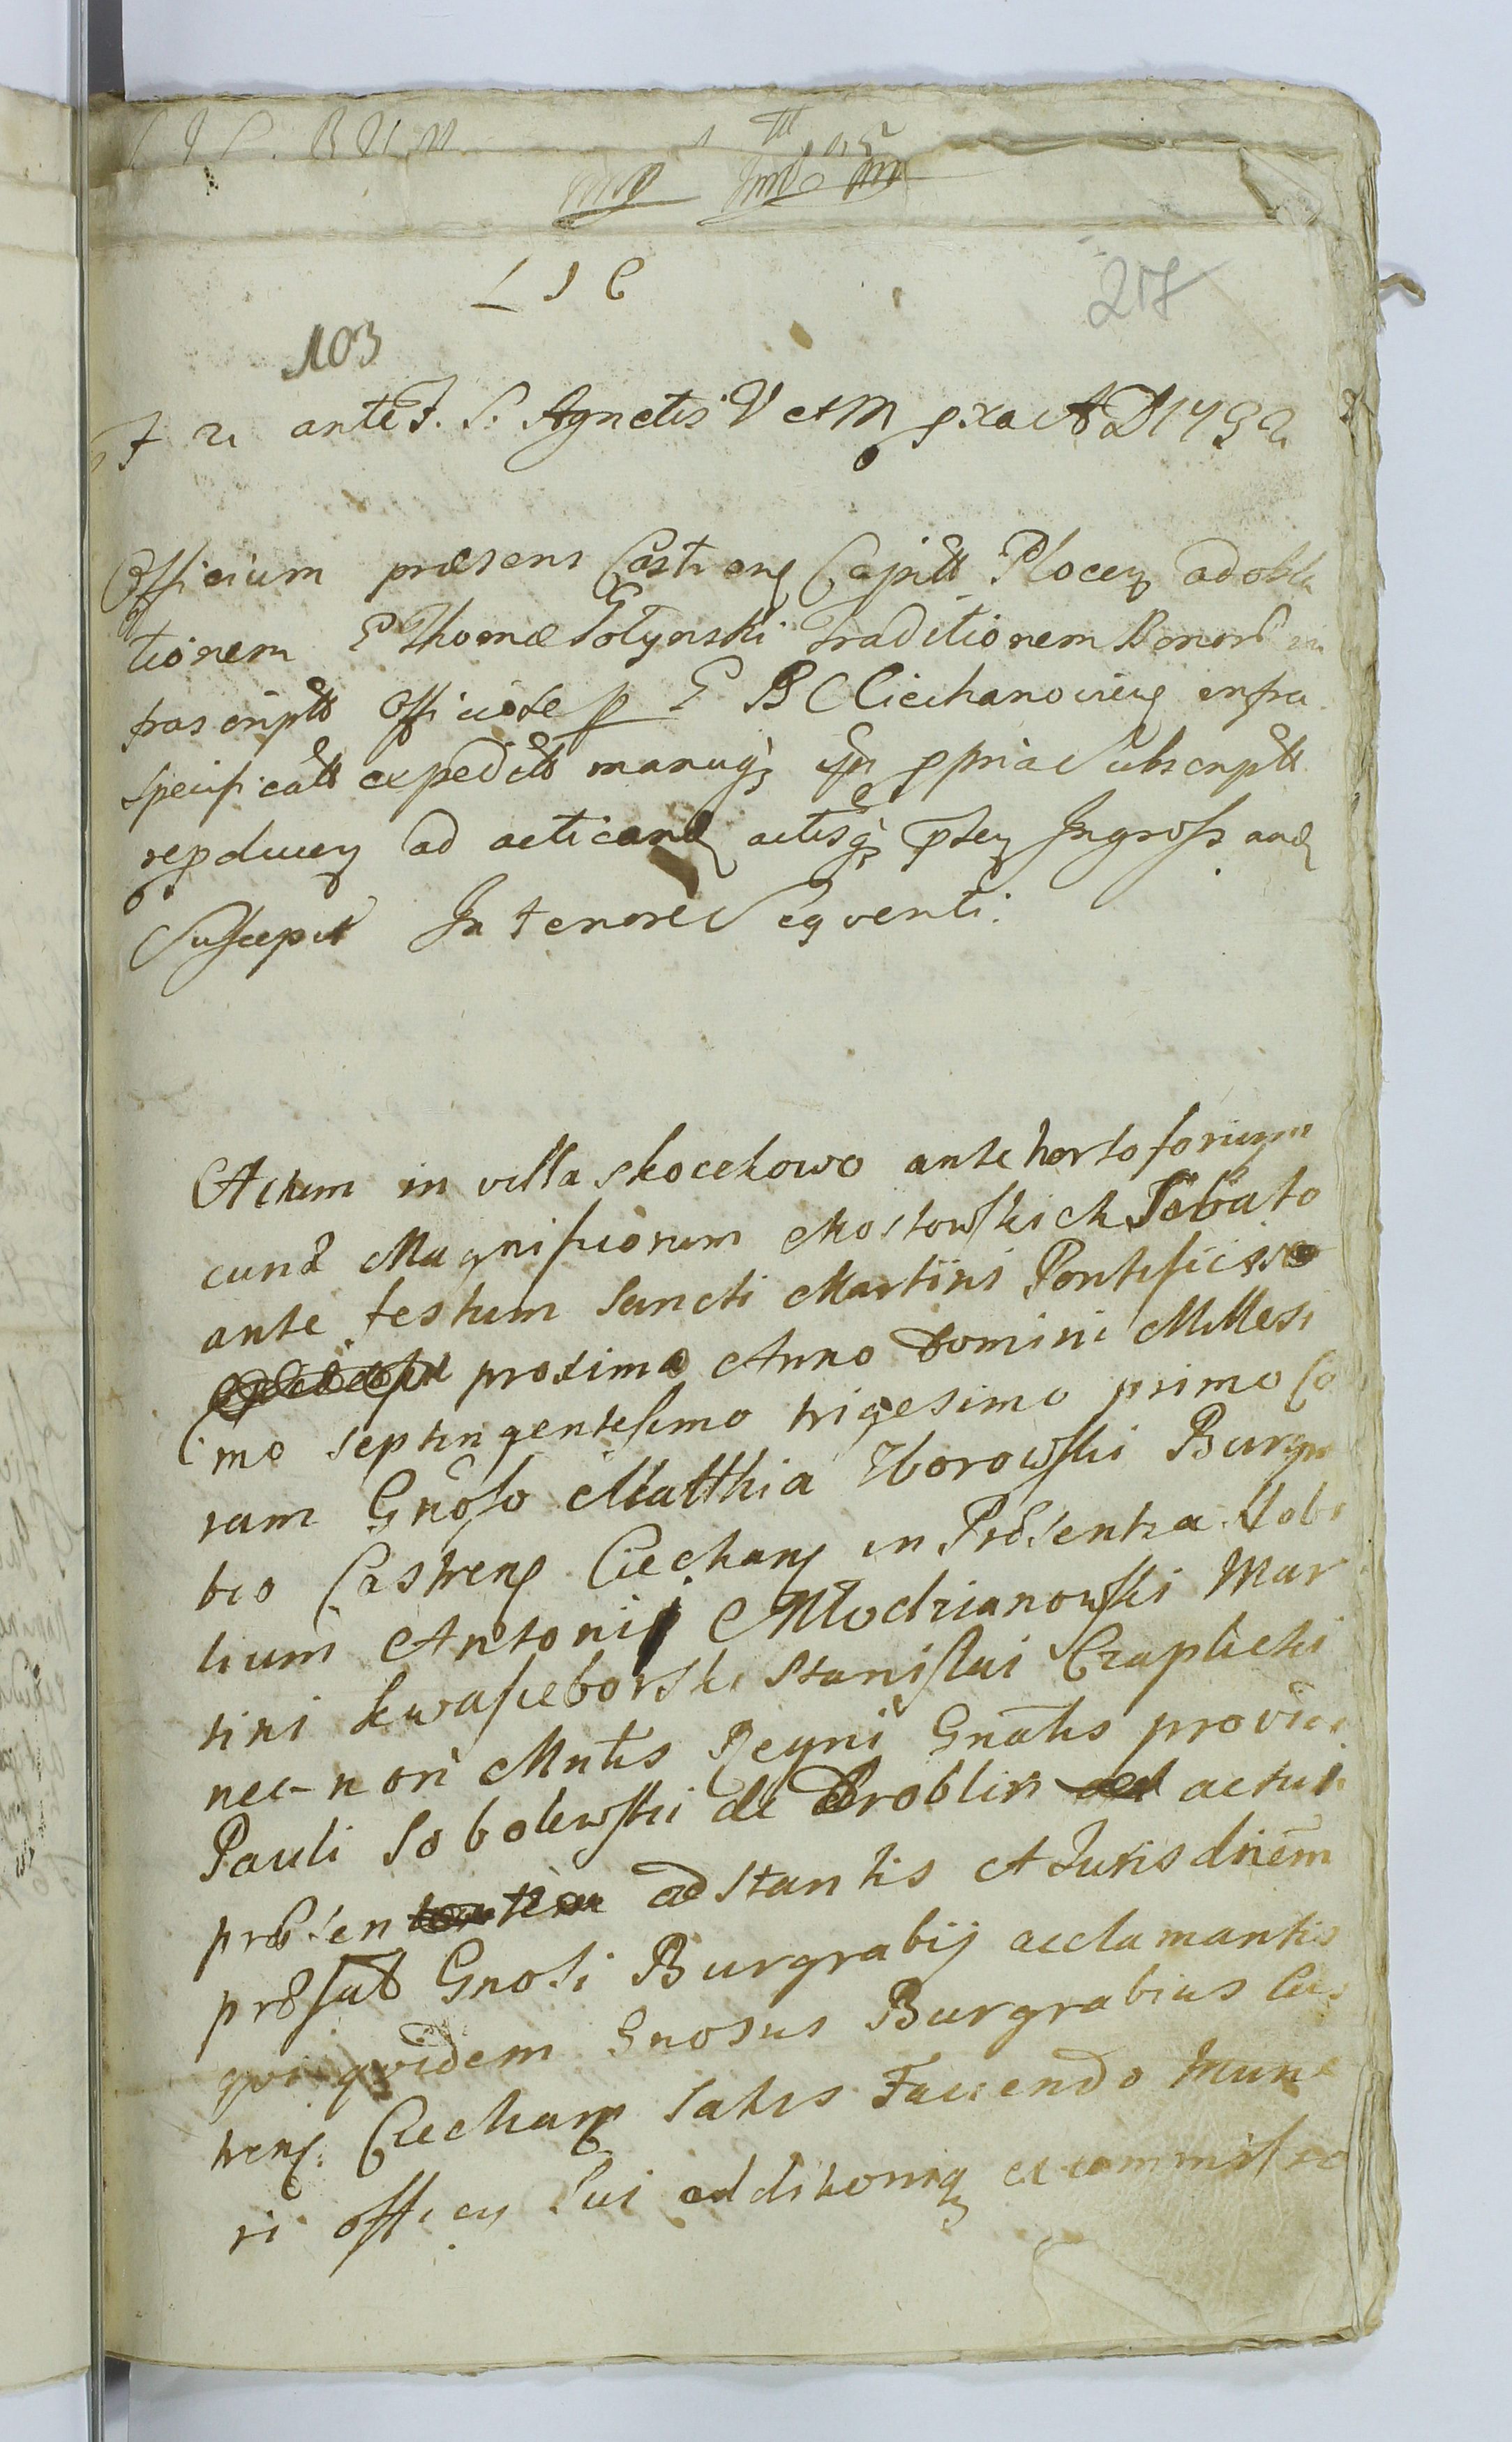 L J C
217
103
F 2i ante F. S. Agnetis V et M pxa A D 1732
Officium præsens Castren Capitt Plocen ad obla
tionem G Thomæ Gołynski traditionem Bonor in
frascriptt Officiose p G B C Ciechanoviens infra
specificatt expeditt manuq3 ipi ppria Subscriptt
repducen ad acticand actisq3 pten Ingrossand
Suscepit In tenore Seqventi.
Actum in villa Skoczkowo ante horto forium
cund Magnificorum Mostowskich Sabato
ante festum Sancti Martini Pontificis
proximo Anno Domini Millesi
mo septingentesimo trigesimo primo Co
ram Gnoso Matthia Zborowski Burgra
bio Castrens Ciechans in Præsentia Nobi
lium Antonij Młodzianowski Mar
tini Kwasieborski Stanislai Czaplicki
nec-non Mntis Regni Gnalis provid
Pauli Sobolewski de Droblin actui
præsen adstantis et Jurisdnem
præfat Gnosi Burgrabij acclamantis
qvi qvidem Gnosus Burgrabius Cas
trens. Ciechan Satis Faciendo Mune
ri officij Sui additioniq3 et commisso